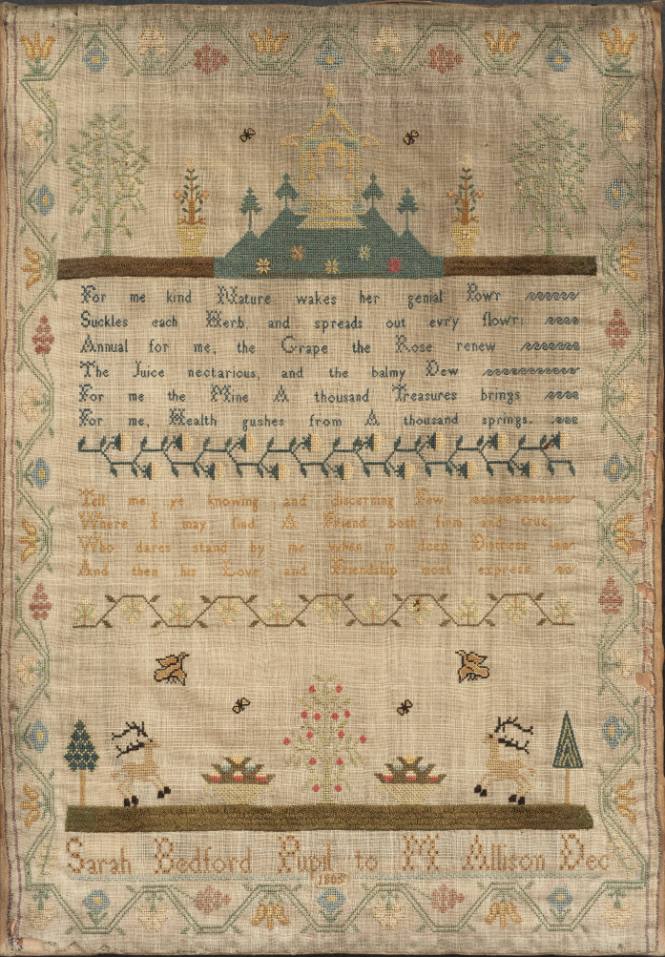 For me kind Nature wakes her genial Powr
Suckles each Herb, and spreads out evry flowr;
Annual for me, the Grape the Rose renew
The Juice nectarious, and the balmy Dew
For me the Mine A thousand Treasures brings
For me, Health gushes from A thousand springs.
Tell me ye knowing and discerning Few
Where I may find A Friend both firm and true
Who dares stand by me when in deep Distress
And then his Love and Friendship most express
Sarah Bedford Pupil to M Allison Dec